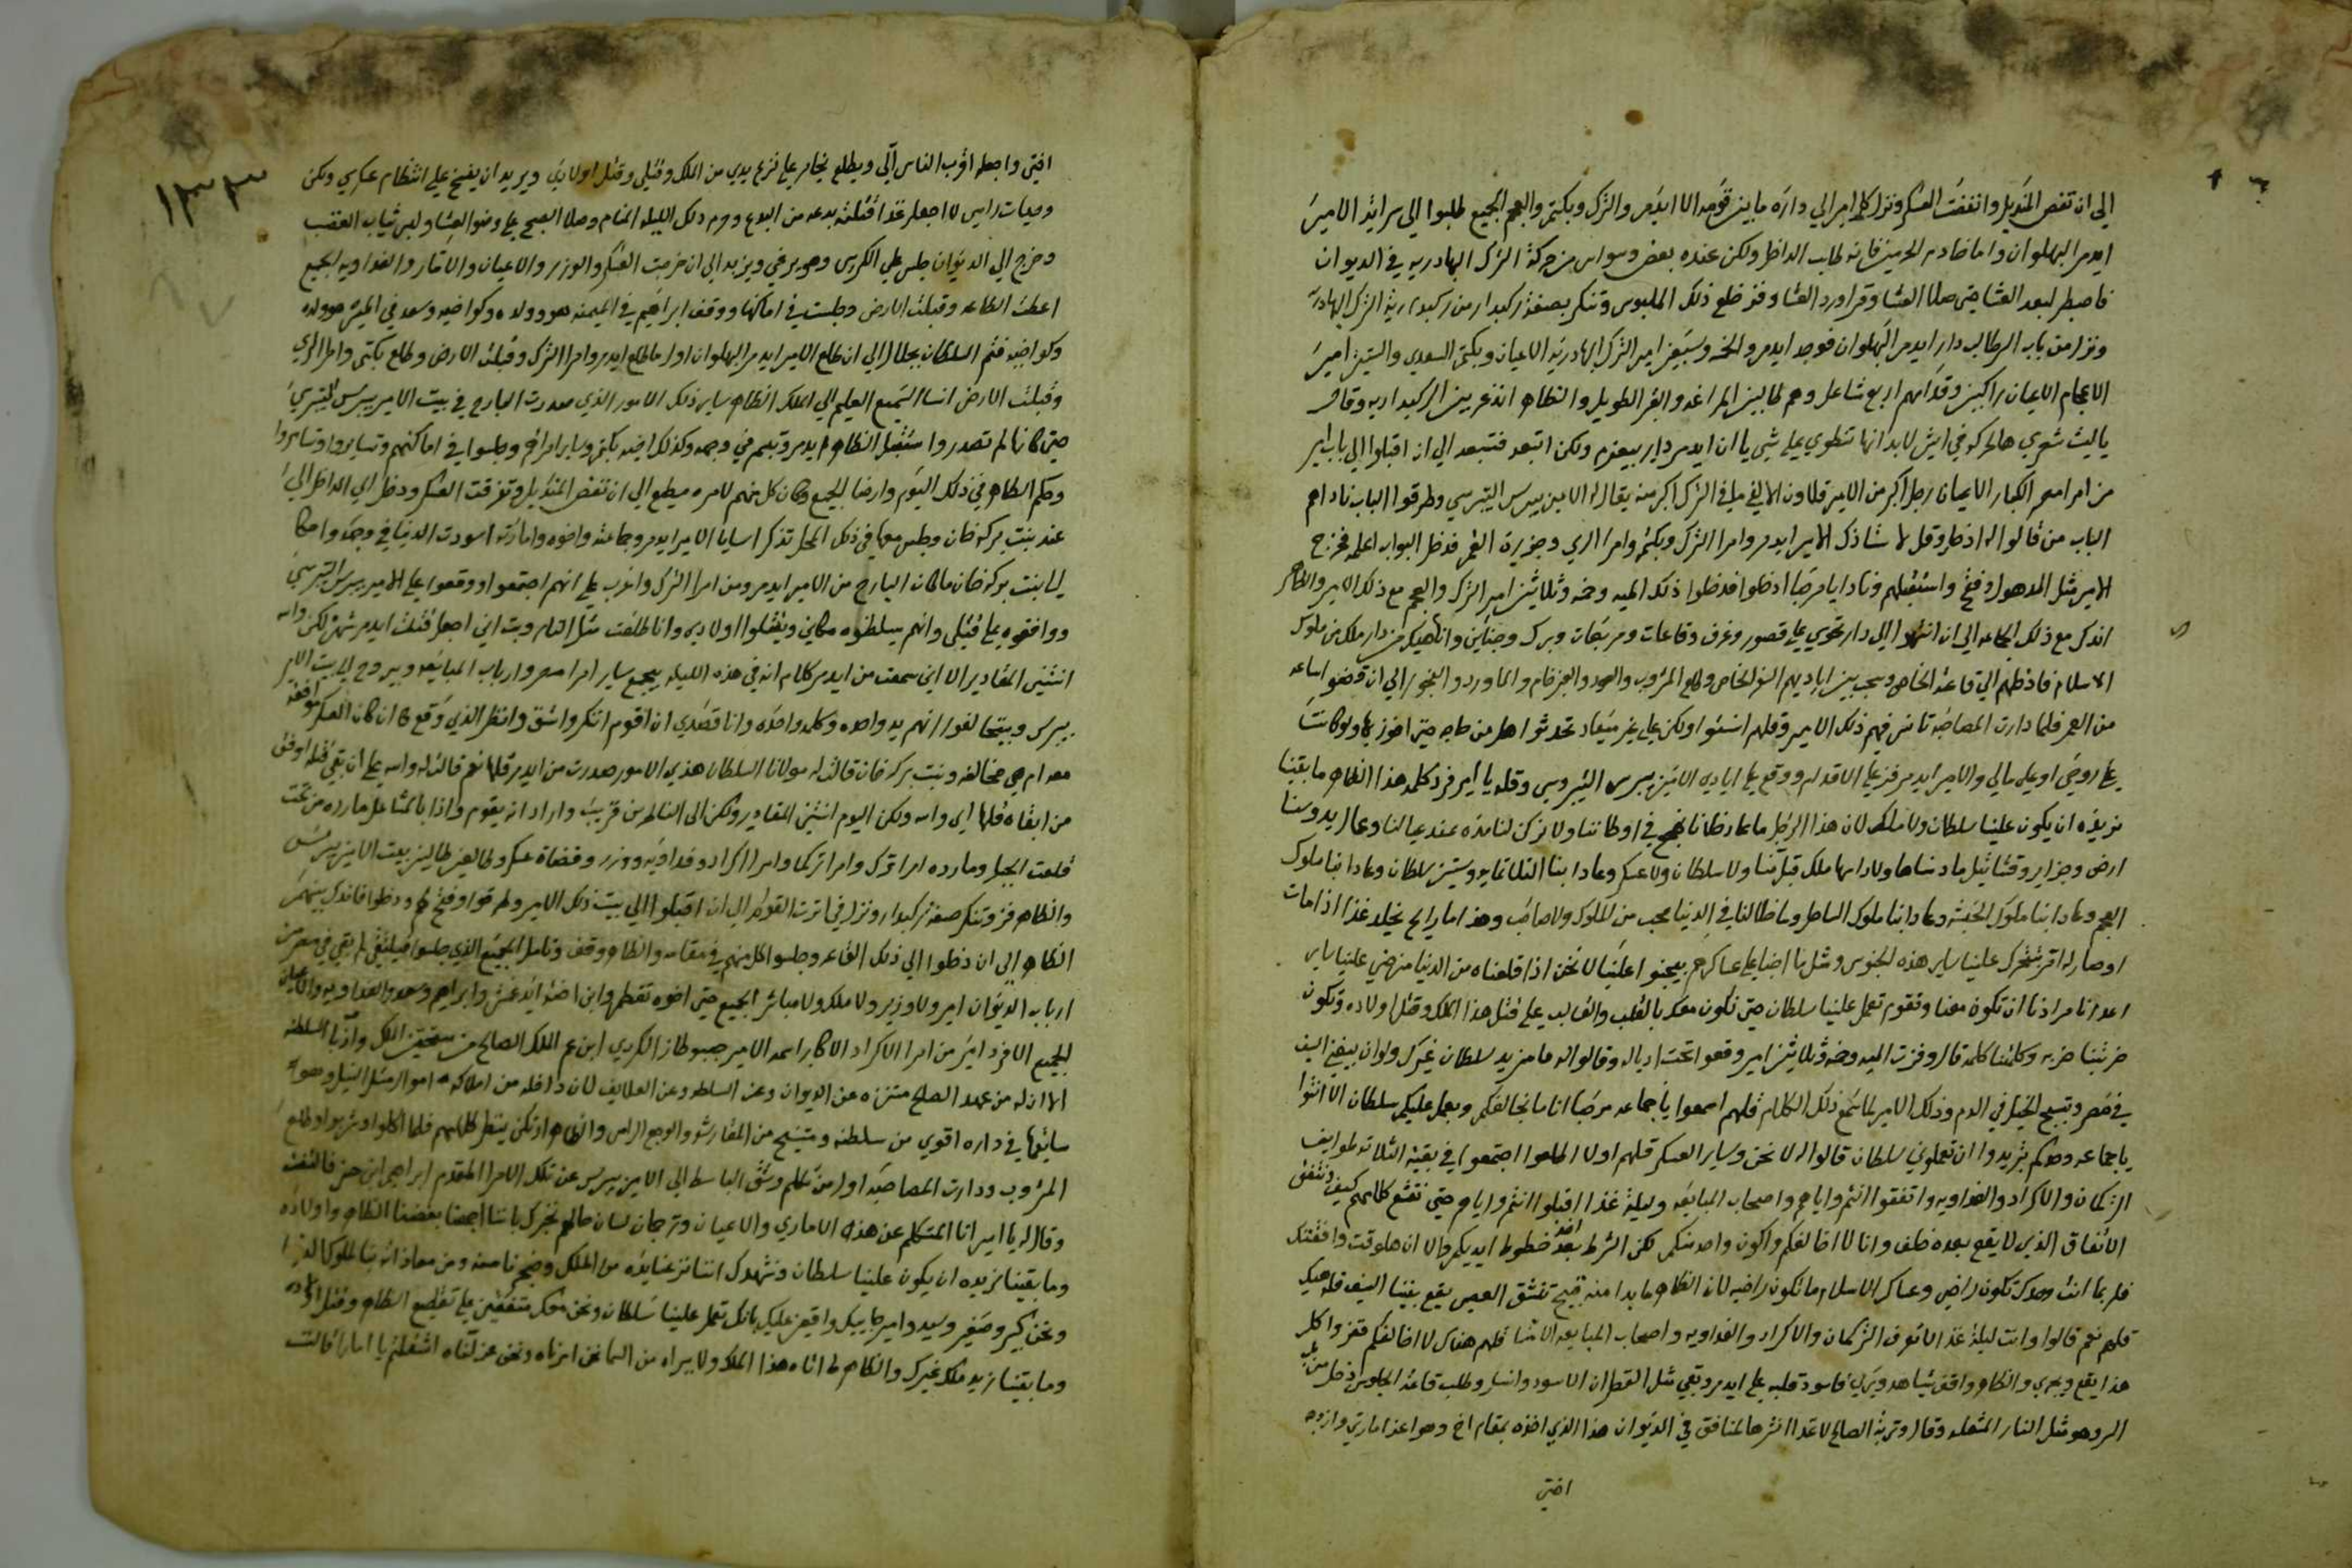 الي ان تفض المنديل وانفضت العسكر ونزل كل امير الي داره ما بين قومه الا ايدمر والترك وبكتمر والعجم الجميع طلبوا الي سرايه الامير
ايدمر البهلوان واما خادم الحرمين فانه طلب الداخل ولكن عنده بعض وسواس من حركة الترك البهادريه في الديوان
فاصطبر لبعد العشا حتي صلا العشا وقرا ورد العشا وقز خلع ذلك الملبوس وتنكر بصفة ركبدار من
ونزل من باب السر طالب دار ايدمر البهلوان فوجد ايدمر والخمسه وسبعين امير الترك البهادريه الاعيان وبكتمر السعدي والستين امير
الاعجام الاعيان راكبين وقدامهم اربع مشاعل وهم طالبين المراغه والبر الطويل والظاهر اندغر بين الركبداريه وقال
يا ليت شعري هالحركه في ايش لابد انها تنطوي علي شي يا ان ايدمر داير بيعزم ولكن اتبعهم فتبعهم الي ان اقبلوا الي باب امير
من امرا مصر الكبار الاعيان رجل اكبر من الامير قلاون الالفي ما في الترك اكبر منه يقال له الامير بيبرس التيبرسي وطرقوا الباب نادا هم
الباب من قالوا له ادخل وقل لاستاذك الامير ايدمر وامرا الترك وبكتمر وامرا الري وجزيرة الغنم فدخل البواب اعلمه فخرج
الامير مثل المدهول وفتح واستقبلهم ونادا يا مرحبا ادخلوا فدخلوا ذلك الميه وخمسه وثلاثين امير الترك والعجم مع ذلك الامير والظاهر
اندك مع ذلك الجماعه الي ان انتهوا الي دار تحوي علي قصور وغرف وقاعات ومربعات وبرك وجناين وانا هيك من دار ملك من ملوك
الاسلام فادخلهم الي قاعة الخاص وسحب بين اياديهم السفر الخاص وطلع المشروب والعود والعنبر خام والماورد والبخور الي ان قضوا ساعه
من العمر فلما دارت المصاحبه تانس فيهم ذلك الامير وقلهم انستوا ولكن علي غير ميعاد تحدثوا هل من حاجه حتي افوز بها ولو كانت
علي روحي او علي مالي والامير ايدمر قز علي الاقدام ووقع علي ايادي الامير بيبرس التيبرسي وقله يا امير فرد كلمه هذا الظاهر ما بقينا
نريده ان يكون علينا سلطان ولا ملك لان هذا الرجل ما عاد خلانا نفرح في اوطاننا ولا نركن لنا مده عند عيالنا وعمال يدوسنا
ارض وجزاير وقتا شي ما دسناها ولا داسها ملك قبلنا ولا سلطان ولا عسكر وعادا بنا الثلاثمايه وستين سلطان وعادا بنا ملوك
العجم وعادا بنا ملوك الحبشه وعادا بنا ملوك الساحل وما خلا لنا في الدنيا محب من الملوك ولا صاحب وهذا ما رايح يخلد غدا اذا مات
او صار له اقر بتتحرك علينا ساير هذه الجنوس ومثل ما احنا علي عساكرهم بيجنوا علينا لا نحن اذا قلعناه من الدنيا منرضي علينا ساير
اعدانا مرادنا ان تكون معنا وتقوم تعمل علينا سلطان حتي نكون معك بالقلب والقالب علي قتل هذا الملك وقتل اولاده وتكون
ضربتنا ضربه وكلمتنا كلمه قال وقزت الميه وخمسه وثلاثين امير وقعوا تحت اذياله وقالوا له ما نريد سلطان غيرك ولو ان بيغني السيف
في مصر وتسبح الخيل في الدم وذلك الامير لما سمع ذلك الكلام قلهم اسمعوا يا جماعه مرحبا انا ما بخالفكم وبعمل عليكم سلطان الا انتوا
يا جماعه وحدكم بتريدوا ان تعملوني سلطان قالوا له لا نحن وساير العسكر قلهم اولا اطلعوا اجتمعوا في بقية الثلاثه طوايف
التركمان والاكراد والفداويه واتفقوا انتم واياهم واصحاب المبايعه وليلة غدا اقبلوا انتم واياهم حتي نتسمع كلامكم كيف ونتفق
الاتفاق الذي لا يقع بعده خلف وانا لا اخالفكم واكون واحد منكم لكن الشرط بعد اخذ خطوط ايديكم والا ان هلوقت وافقتك
فلربما انت وحدك تكون راضي وعساكر الاسلام ما تكون راضيه لان الظاهر ما بدا منه قبيح تنشق العصي يقع بيننا السيف قله هيك
قلهم نعم قالوا وانت ليلة غد الا تعرف التركمان والاكراد والفداويه واصحاب المبايعه الا هنا قلهم هناك لا اخالفكم فقزوا كل
هذا يقع ويجري والظاهر واقف يشاهد ويري فاسود قلبه علي ايدمر وبقي مثل القطران الاسود وانسل وطلب قاعة الجلوس دخل من باب
السر وهو مثل النار المشعله وقال وتربة الصالح لاغدا انشر هالمنافق في الديوان هذا الذي اخذه بمقام اخ وهو اعز امارتي وازوجه
اختي
١٣٣
اختي واجعله اقرب الناس الي ويطلع يخامر علي نزع يدي من الملك وقتلي وقتل اولادي ويريد ان يفسخ علي انتظام عسكري ولكن
وحيات راسي لا اجعل غدا قتلته بدعه من البدع وحرم ذلك الليله المنام وصلا الصبح علي وضو العشا ولبس ثياب الغضب
وخرج الي الديوان جلس علي الكرسي وهو يرغي ويزبد الي ان خرجت العسكر والوزر والاعيان والاقار والفداويه الجميع
اعطت الطاعه وقبلت الارض وجلست في اماكنها ووقف ابراهيم في الميمنه هو وولده وكواخيه وسعد في الميسره هو وولده
وكواخيه فتم السلطان بجلال الي ان طلع الامير ايدمر البهلوان اول ما طلع ايدمر وامرا الترك وقبلت الارض وطلع بكتمر وامرا الري
وقبلت الارض انسا السميع العليم الي الملك الظاهر ساير ذلك الامور الذي صدرت البارح في بيت الامير بيبرس التيبرسي
حتي كانها لم تصدر واستقبل الظاهر ايدمر وتبسم في وجهه وكذلك اخيه بكتمر وساير امراهم وجلسوا في اماكنهم وتسايروا وتسايروا
وحكم الظاهر في ذلك اليوم وارضا الجميع وكان كل منهم لامره مطيع الي ان تفض المنديل وتفرقت العسكر ودخل الي الداخل الي
عند بنت بركه خان وجلس معها في ذلك المحل تذكر اساية الامير ايدمر وجماعته واخوه وامارته اسودت الدنيا في وجهه واحكا
لبنت بركه خان ما كان البارح من الامير ايدمر ومن امرا الترك واغرب علي انهم اجتمعوا ووقعوا علي الامير بيبرس التيبرسي
ووافقوه علي قتلي وانهم يسلطنوه مكاني ويقتلوا اولادي وانا طلعت مثل النار وبت اني اجعل قتلت ايدمر شهره لكن والله
انستني المقادير الا اني سمعت من ايدمر كلام انه في هذه الليله يجمع ساير امرا مصر وارباب المبايعه ويروح الي بيت الامير
بيبرس ويبتحالفوا انهم يد واحده وكلمه واحده وانا قصدي ان اقوم اتنكر واشق وانظر الذي وقع كا ان كان العسكر موافقه
معه ام هي مخالفه وبنت بركه خان قالت له مولانا السلطان هذي الامور صدرت من ايدمر قلها نعم قالت له والله علي ان بقي قتله اوفق
من ابقاه قلها اي والله ولكن اليوم انستني المقادير ولكن الي الناظرين قريب واراد انه يقوم واذا بالمشاعل مارده من تحت
قلعت الجبل ومارده امرا ترك وامرا تركمان وامرا اكراد وفداويه ووزر وقضاة عسكر وطالعين طالبين بيت الامير بيبرس
والظاهر قز وتنكر صفة ركبدار ونزل في اثرت القوم الي ان اقبلوا الي بيت ذلك الامير وطرقوا وفتح لهم ودخلوا فاندك بينهم
الظاهر الي ان دخلوا الي ذلك القاعه وجلسوا كل منهم في مقامه والظاهر وقف وتامل الجميع الذي جلسوا فيلتقي لم بقي في مصر من
ارباب الديوان امير ولا وزير ولا ملك ولا مباشر الجميع حتي اخوه تقطمر وابن اخته ايدغمش وابراهيم وسعد والفداويه والاعيان
الجميع الا فرد امير من امرا الاكراد الاكابر اسمه الامير حبيب وطاز الكردي ابن عم الملك الصالح من مستحقين الملك وارباب السلطنه
الا ان له من عهد الصالح متنزه عن الديوان وعن السلطنه وعن العلايف لان داخله من املاكه اموال مثل السيل وهو
سايقها في داره اقوي من سلطنه ومتنسخ من المقارشه والوجع الراس والظاهر ارتكن ينتظر كلامهم فلما اكلوا وشربوا وطلع
المشروب ودارت المصاحبه اول من تكلم وشق الباسط الي الامير بيبرس عن تلك الامرا المقدم ابراهيم ابن حسن فالتفت
وقال له يا امير انا المتكلم عن هذه الامارى والاعيان وترجمان لسان حالهم نخبرك باننا اجمعنا بغضنا الظاهر واولاده
وما بقينا نريده ان يكون علينا سلطان ونشهدك اننا نزعنا يده من الملك وضجرنا منه ومن معاداته بنا للملوك الغز
ونحن كبير وصغير وسيد وامير جايينك واقعين عليك بانك تعمل علينا سلطان ونحن معك متفقين علي تقليع الظاهر وقتل اولاده
وما بقينا نريد ملك غيرك والظاهر لو اتاه هذا الملك ولا يبراه من السما نحن انزلناه ونحن عزلناه اشغلتم يا امارا قالت